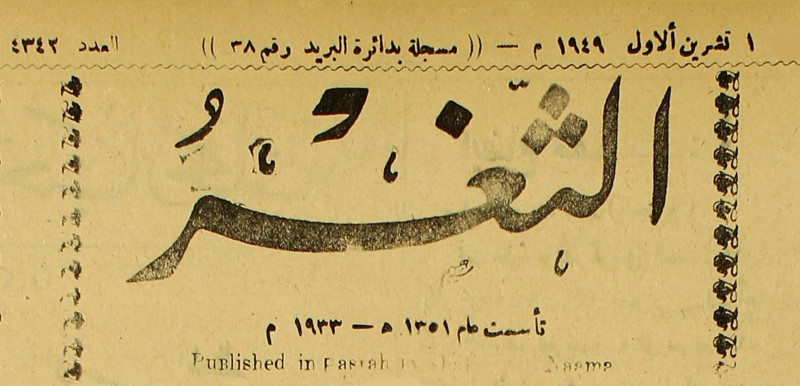 ١ تشرين ألاول ١٩٤٩ م — (( مسجلة بدائرة البريد رقم ٣٨ )) العدد ٤٣٤٢
الثَّغْرُ
تأسست عام ١٣٥١ ه — ١٩٣٣ م
Published in Basrah